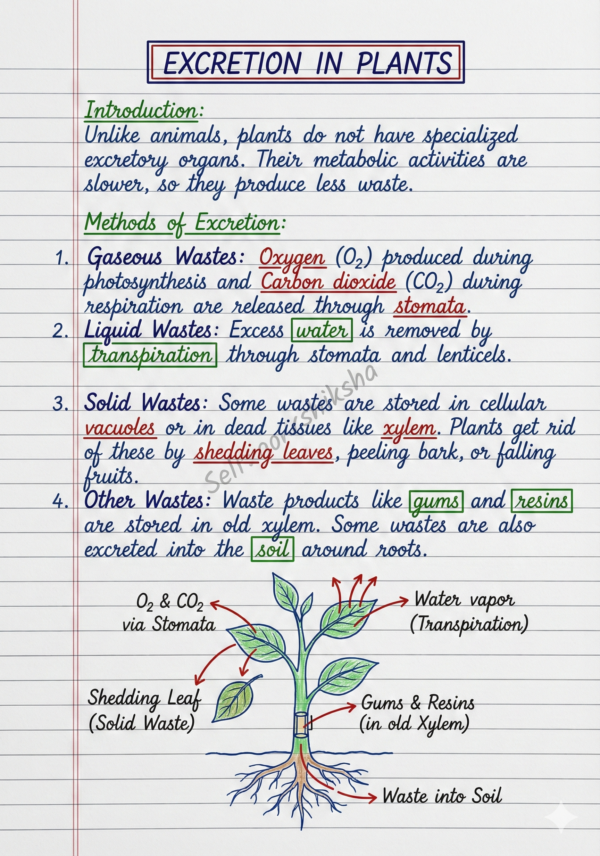 EXCRETION IN PLANTS
Introduction:
Unlike animals, plants do not have specialized
excretory organs. Their metabolic activities are
slower, so they produce less waste.
Methods of Excretion:
1. Gaseous Wastes: Oxygen (O₂) produced during
photosynthesis and Carbon dioxide (CO₂) during
respiration are released through stomata.
2. Liquid Wastes: Excess water is removed by
transpiration through stomata and lenticels.
3. Solid Wastes: Some wastes are stored in cellular
vacuoles or in dead tissues like xylem. Plants get rid
of these by shedding leaves, peeling bark, or falling
fruits.
4. Other Wastes: Waste products like gums and resins
are stored in old xylem. Some wastes are also
excreted into the soil around roots.
O₂ & CO₂
via Stomata
Water vapor
(Transpiration)
Shedding Leaf
(Solid Waste)
Gums & Resins
(in old Xylem)
Waste into Soil